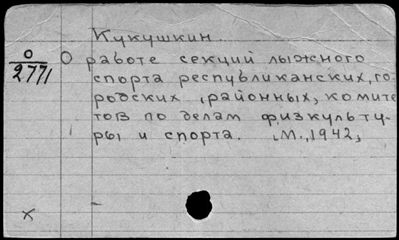 Кукушкин
О
2771
О работе секций лыжного
спорта республиканских, го-
родских, районных, комите-
тов по делам физкульту-
ры и спорта. М., 1942,
х